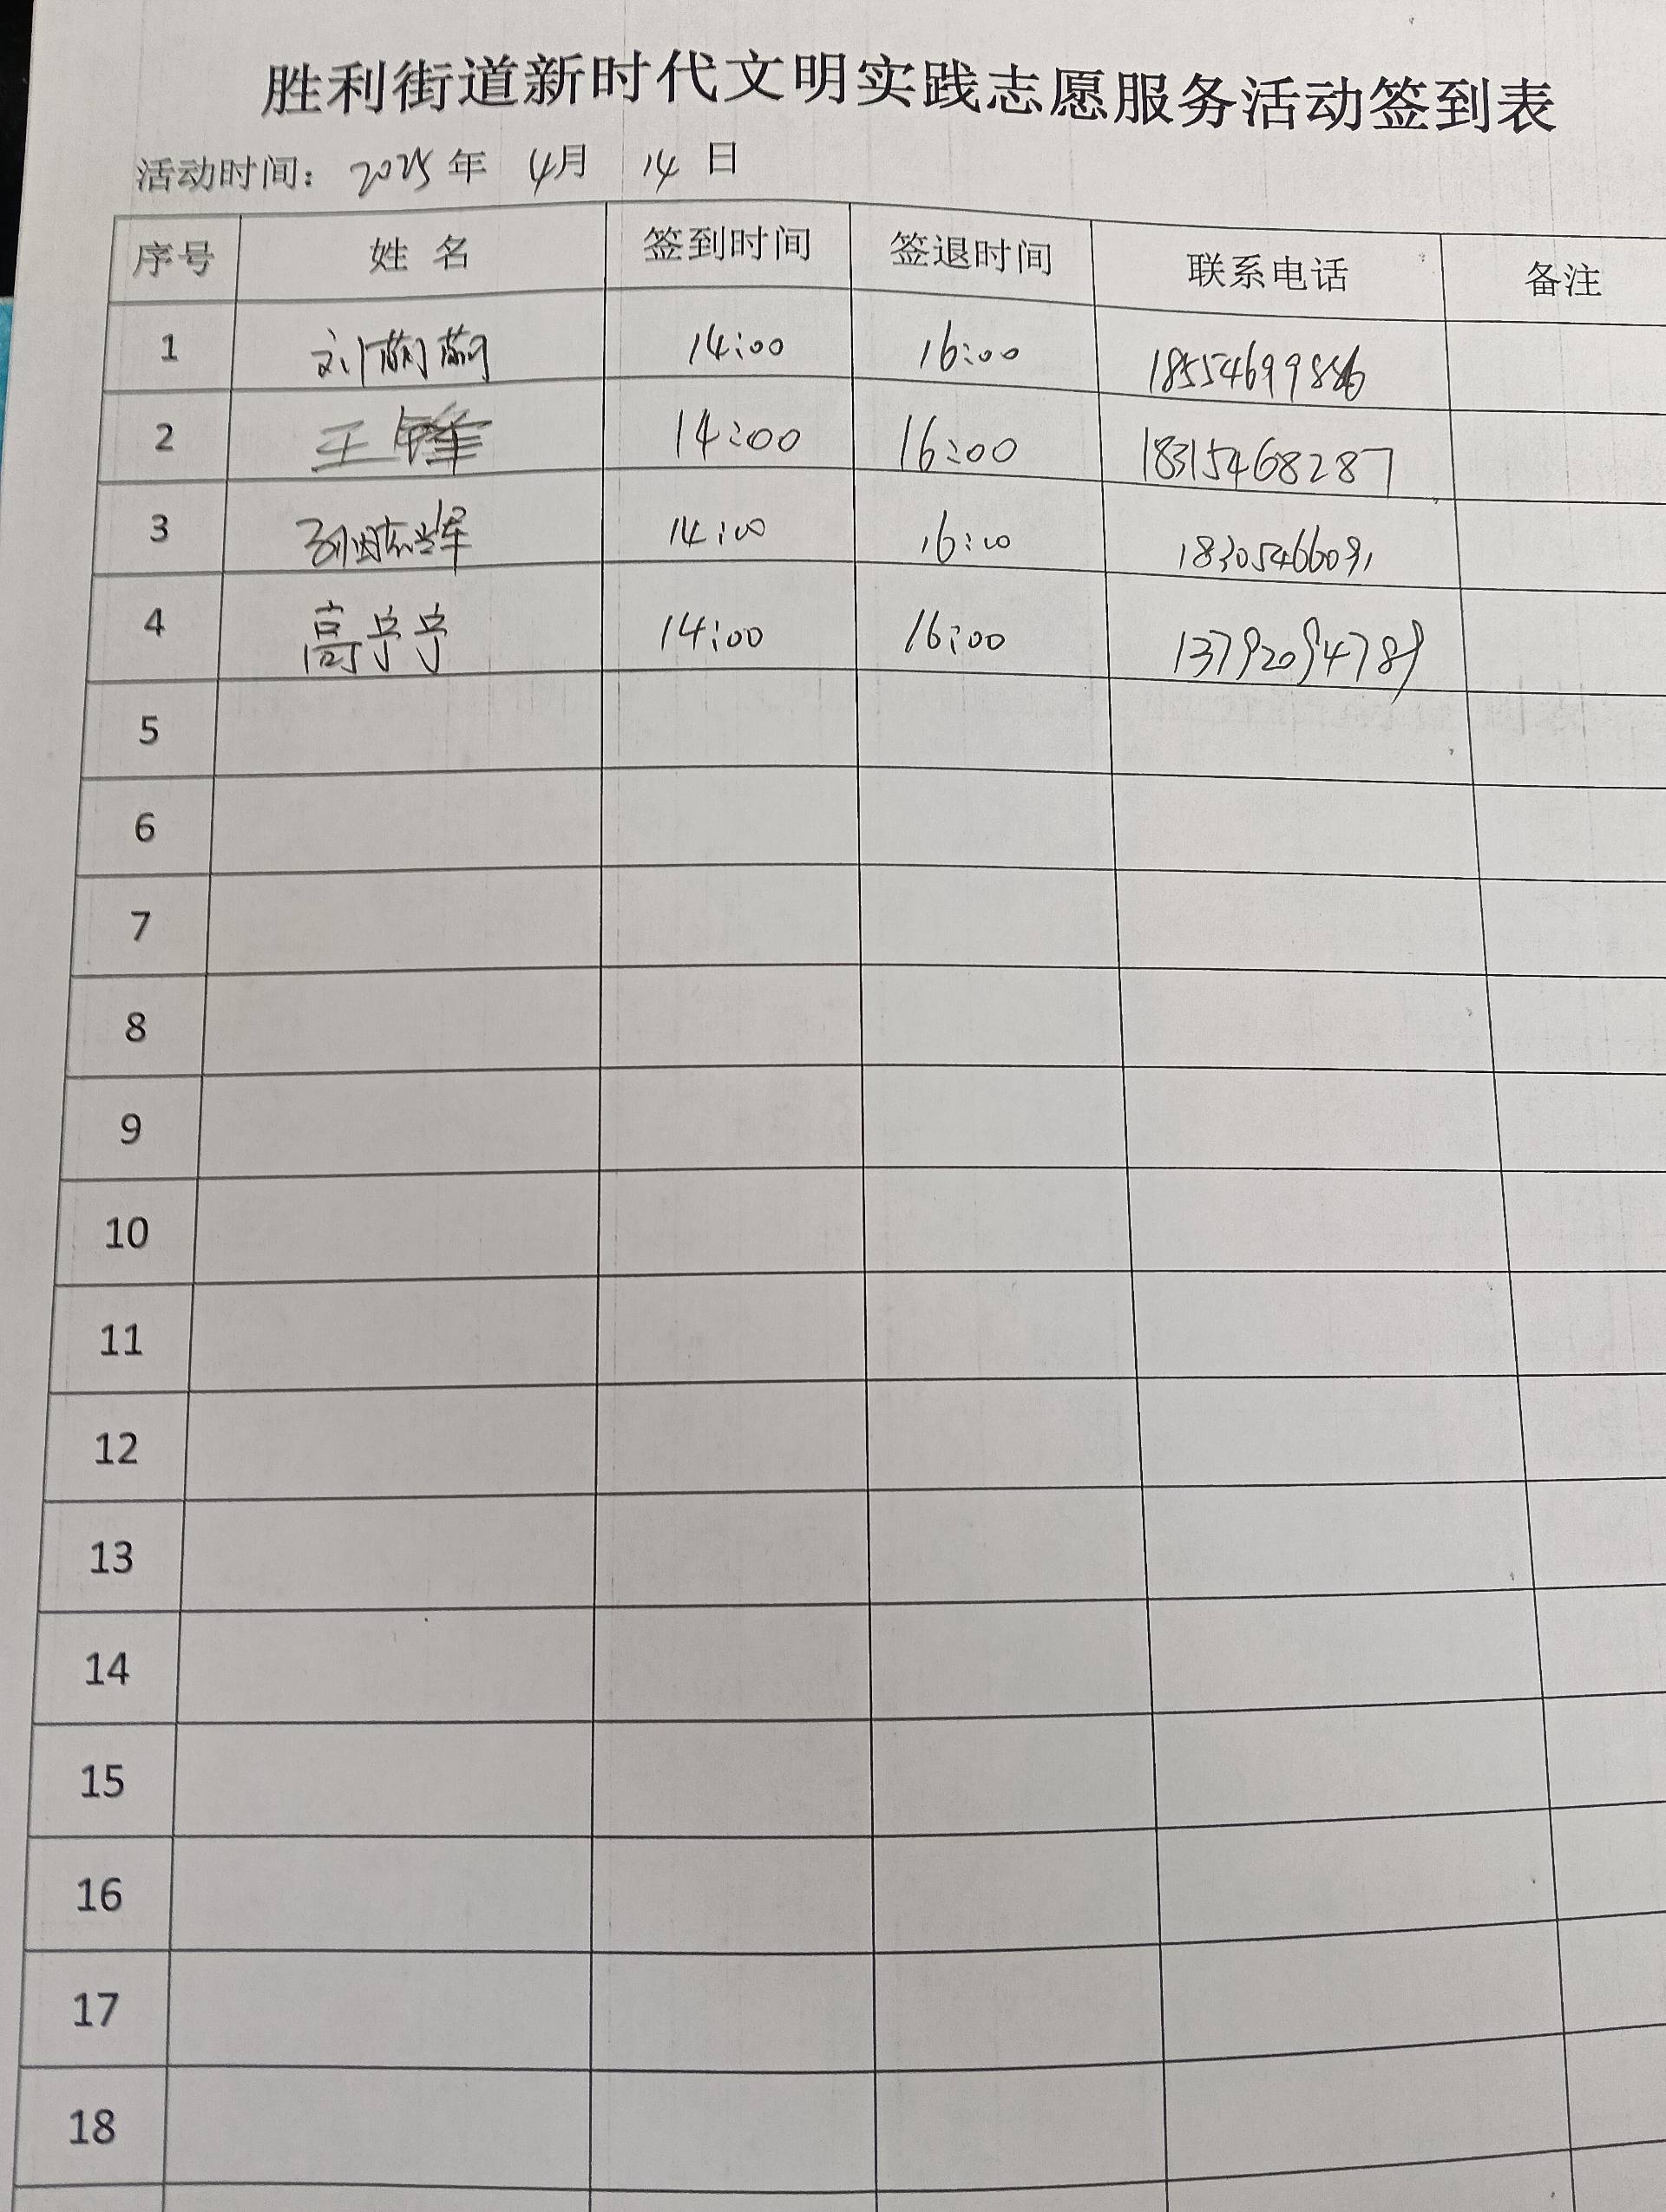 胜利街道新时代文明实践志愿服务活动签到表
活动时间：2025年 4月 14 日
序号 姓 名 签到时间 签退时间 联系电话 备注
1 刘萌萌 14:00 16:00 18554699886
2 王锋 14:00 16:00 18315468287
3 14:00 16:00 18305466091
4 高宁宁 14:00 16:00 13792094789
5
6
7
8
9
10
11
12
13
14
15
16
17
18